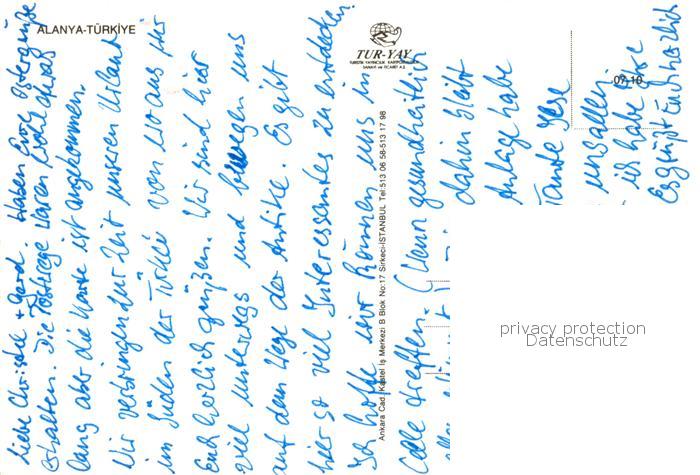 ALANYA-TÜRKİYE
TUR-YAY
TURİSTİK YAYINCILIK KARTPOSTALCILIK
SANAYİ ve TİCARET A.Ş.
07-10
Ankara Cad. Kastel İş Merkezi B Blok No:17 Sirkeci-İSTANBUL Tel:513 06 58-513 17 98
Liebe Christel + Gerd. Haben Eure Ostergrüße
erhalten. Die Postwege waren wohl etwas
lang aber die Karte ist angekommen.
Wir verbringen zur Zeit unseren Urlaub
im Süden der Türkei von wo aus wir
Euch herzlich grüßen. Wir sind hier
viel unterwegs und bewegen uns
auf dem Wege der Antike. Es gibt
hier so viel Interessantes zu entdecken.
Ich hoffe wir können uns in
alle treffen. (Wenn gesundheitlich
dahin bleibt
Anlage habe
Tante
uns allen
ich habe
Es grüßt Euch herzlich
privacy protection
Datenschutz